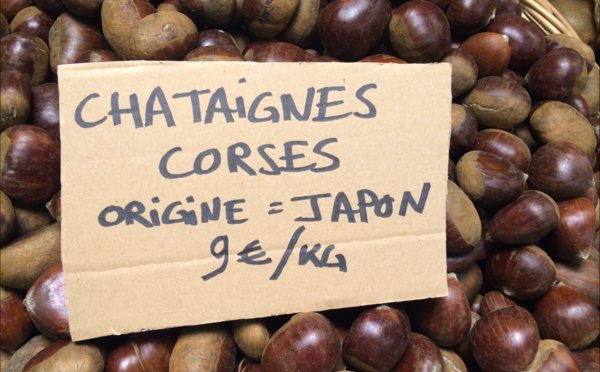 CHATAiGNES
CORSES
ORiGiNE = JAPON
9€/KG